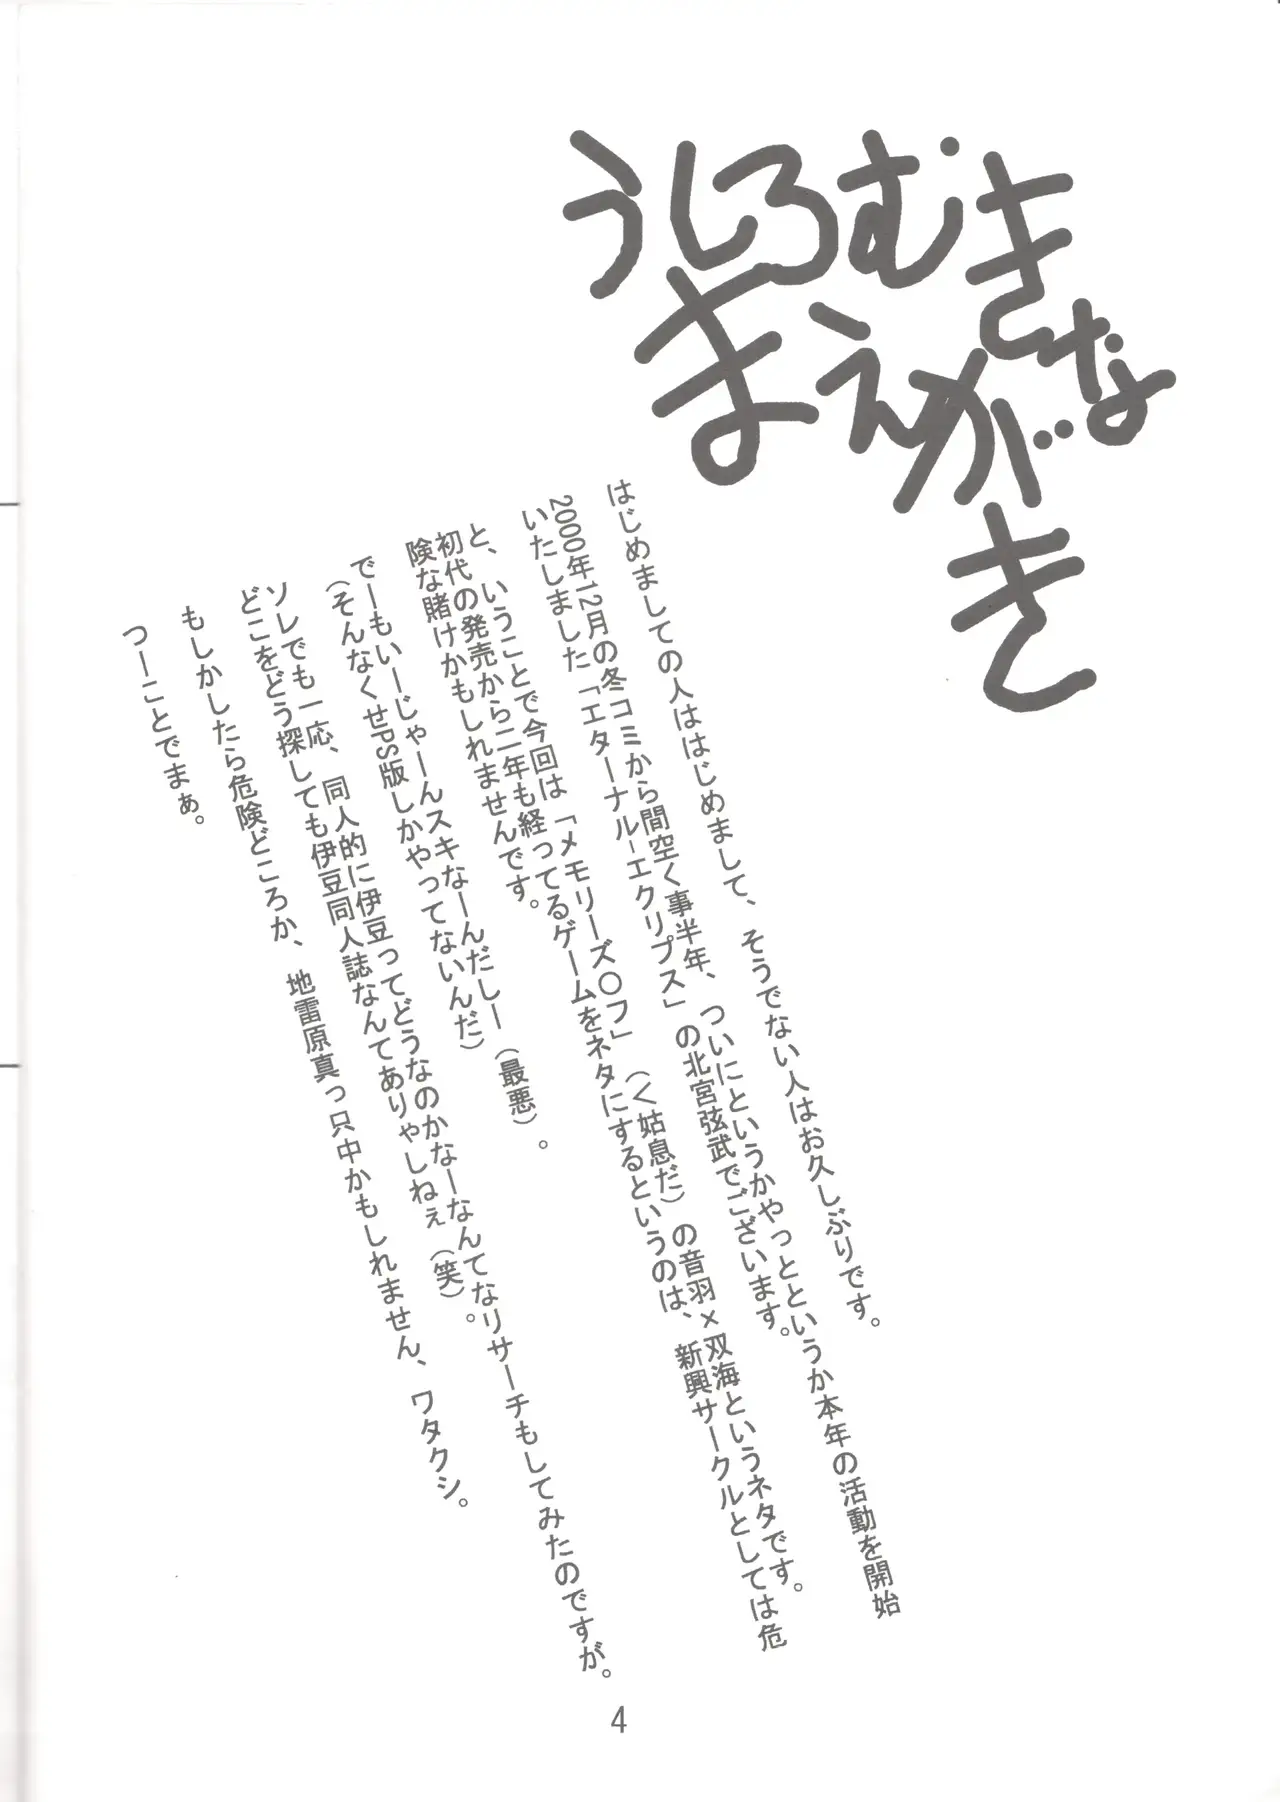 うしろむきな
まえがき
はじめましての人ははじめまして、そうでない人はお久しぶりです。
2000年12月の冬コミから間空く事半年、ついにというかやっとというか本年の活動を開始
いたしました「エターナル-エクリプス」の北宮弦武でございます。
と、いうことで今回は「メモリーズ〇フ」（＜姑息だ）の音羽×双海というネタです。
初代の発売から二年も経ってるゲームをネタにするというのは、新興サークルとしては危
険な賭けかもしれませんです。
でーもいーじゃーんスキなーんだしー（最悪）。
（そんなくせPS版しかやってないんだ）
ソレでも一応、同人的に伊豆ってどうなのかなーなんてなリサーチもしてみたのですが。
どこをどう探しても伊豆同人誌なんてありゃしねぇ（笑）。
もしかしたら危険どころか、地雷原真っ只中かもしれません、ワタクシ。
つーことでまぁ。
4